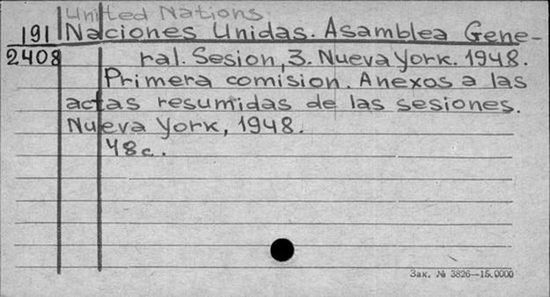 United Nations.
191 Naciones Unidas. Asamblea Gene-
2408 ral. Sesion, 3. Nueva York. 1948.
Primera comision. Anexos a las
actas resumidas de las sesiones.
Nueva York, 1948.
48c.
Зак. № 3826—15.0000